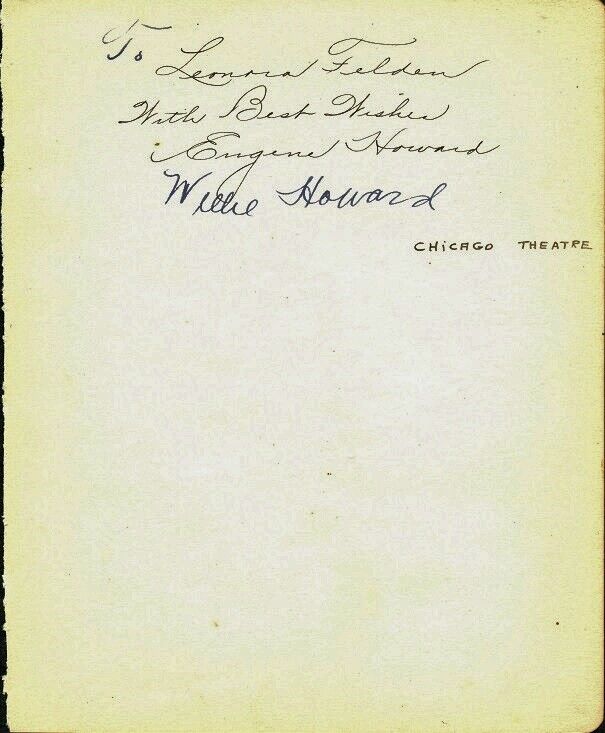 To Leonora Felden
With Best Wishes
Eugene Howard
Willie Howard
CHiCAGO THEATRE